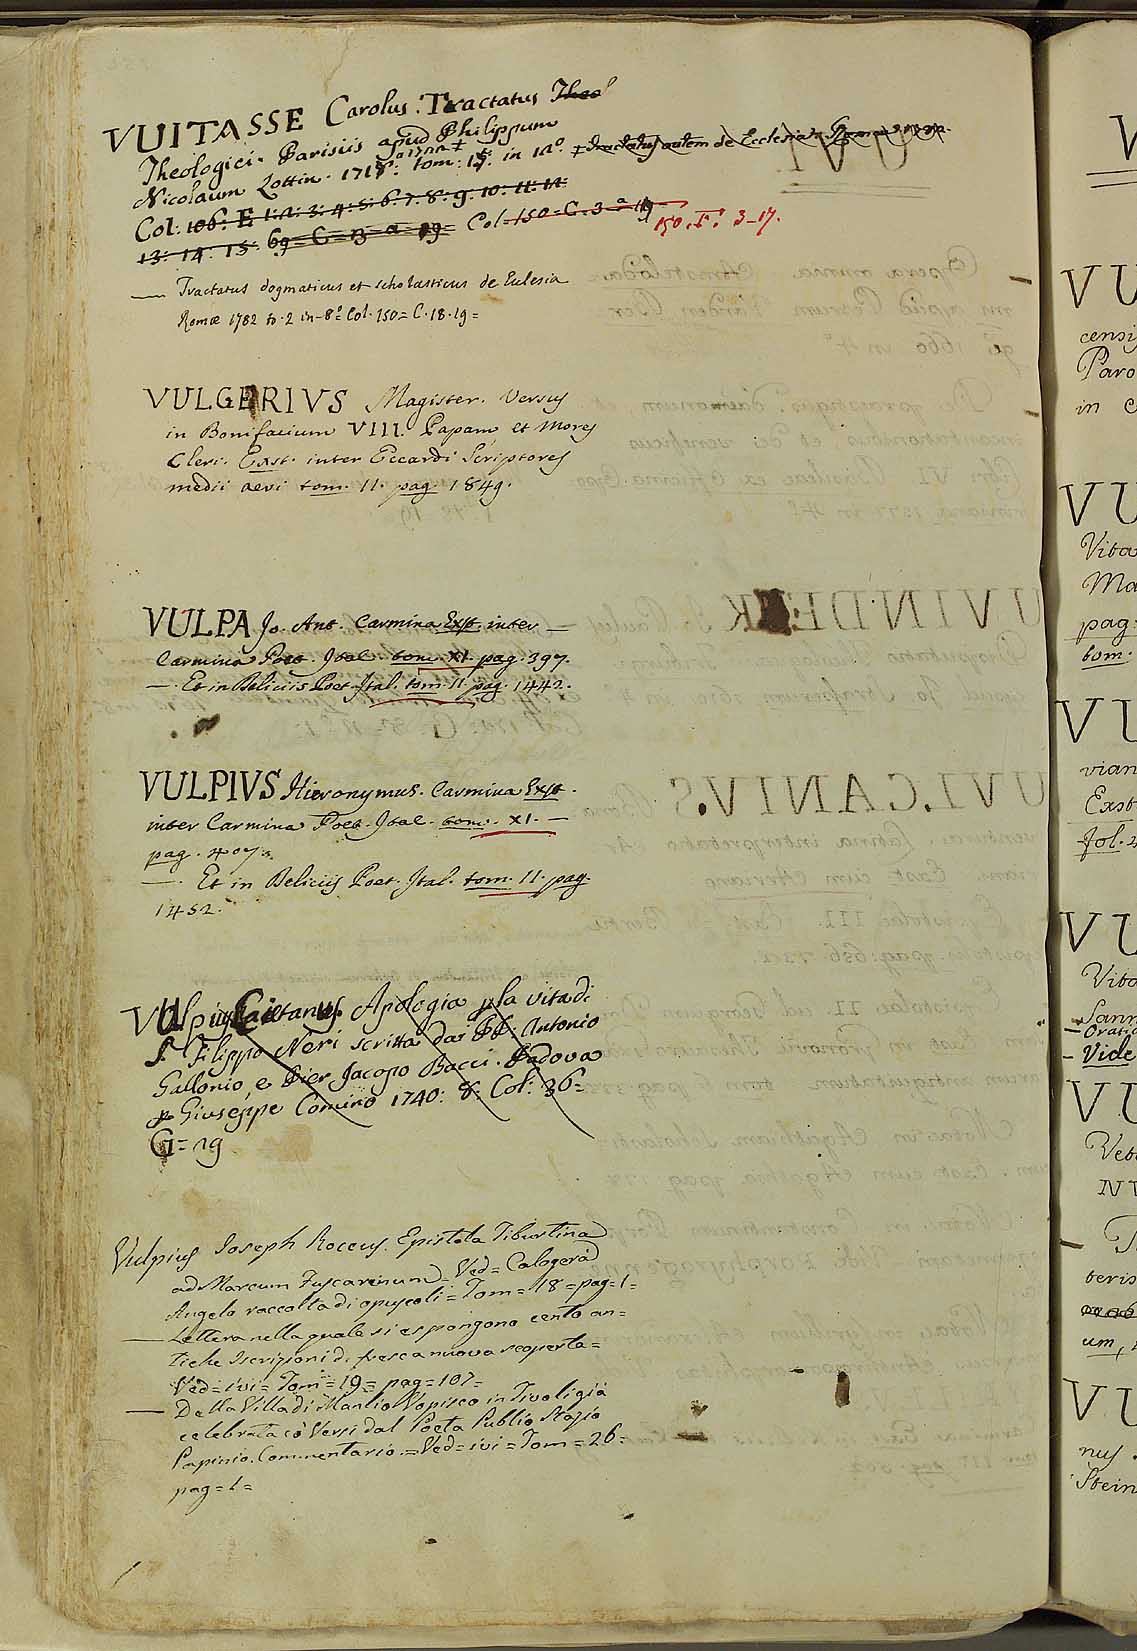 VUITASSE Carolus. Tractatus Theol
Theologici. Parisiis apud Philippum
Nicolaum Lottin. 1718: tom: 15: in 12.º ‡ Tractatus autem de Ecclesia Romae
Col: 106: E 1: 2: 3: 4: 5: 6: 7: 8: 9: 10: 11: 12:
13: 14: 15: 69= C= 13= a= 29= Col=150=C=3=a=19
150. F. 3-17.
— Tractatus dogmaticus et scholasticus de Eclesia
Romæ 1782 to. 2 in-8º= Col. 150= C. 18. 19=
VULGERIVS Magister. Versus
in Bonifacium VIII. Papam et Mores
Cleri. Exst. inter Eccardi Scriptores
medii aevi tom. II. pag. 1849.
VULPA Jo. Ant. Carmina Exst. inter —
Carmina Poet. Ital. tom. XI. pag. 397.
— Et in Deliciis Poet. Ital. tom. II pag. 1442.
VULPIVS Hieronymus. Carmina Exst.
inter Carmina Poet. Ital. tom. XI. —
pag. 407.
— Et in Deliciis Poet. Ital. tom. II. pag.
1452.
Vulpius Caietanus. Apologia p la vita di
S. Filippo Neri scritta dai PP. Antonio
Gallonio, e Pier Jacopo Bacci. Padova
p Giuseppe Comino 1740: 8: Col: 36=
G= 29
Vulpius Joseph Roccus. Epistola Tiburtina
ad Marcum Fuscarenum= Ved= Calogerà
Angelo raccolta di opuscoli= Tom= 18= pag=1=
— Lettera nella quale si espongono cento an=
tiche Iscrizioni di fresca nuova scoperta=
Ved= ivi= Tom= 19= pag= 107=
— Della Villa di Manlio Vopisco in Tivoli già
celebrata cò Versi dal Poeta Publio Stazio
Papinio. Commentario.= Ved= ivi= Tom= 26=
pag= 1=
V
VU
censi
Paro
in
VU
Vita
Ma
pag.
tom.
VU
vian
Exst
fol.
VU
Vita
Sann
— Oratio
— Vide
VU
Vet
NV
teris
um,
VU
nus.
Stein